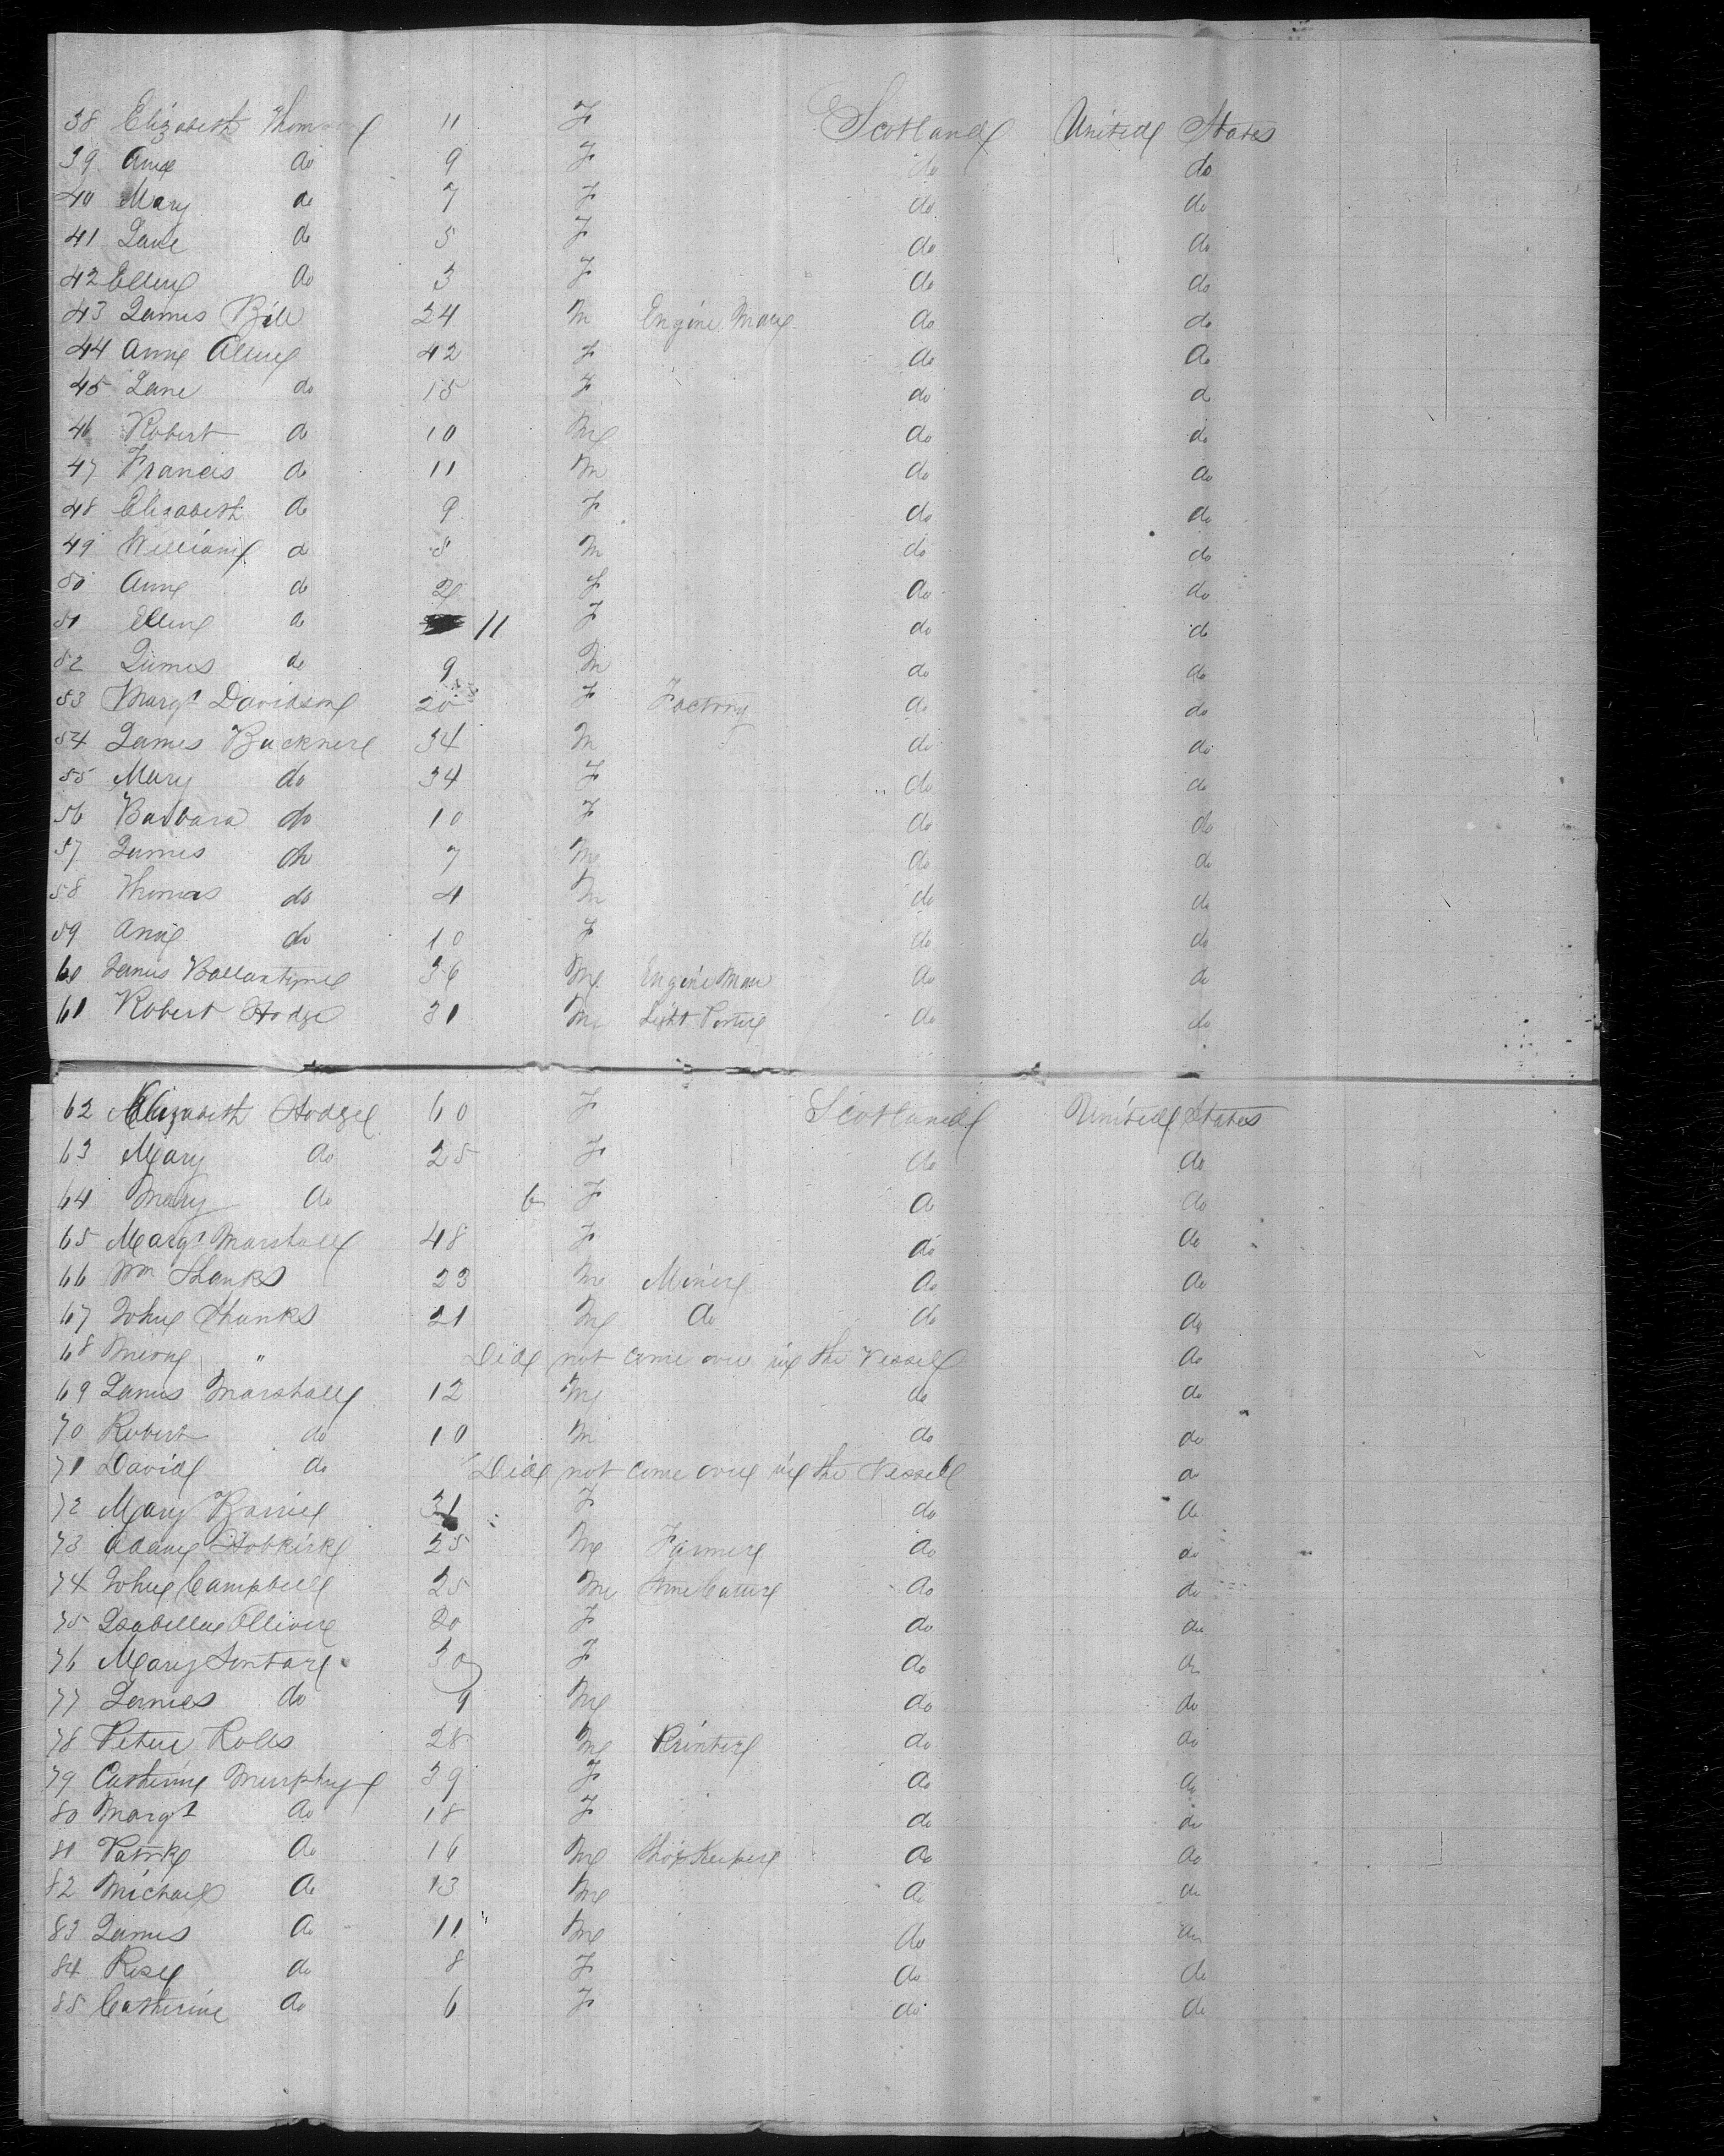 38 Elizabeth Thomson 11 F Scotland United States
39 Ann do 9 F do do
40 Mary do 7 F do do
41 Jane do 5 F do do
42 Ellen do 3 F do do
43 James Bell 24 M Engine Man do do
44 Ann Allen 42 F do do
45 Jane do 15 F do do
46 Robert do 10 M do do
47 Francis do 11 M do do
48 Elizabeth do 9 F do do
49 William do 5 M do do
50 Ann do 2 F do do
51 Ellen do 11 F do do
52 James do 9 M do do
53 Margt Davidson 20 F Factory do do
54 James Buckner 34 M do do
55 Mary do 34 F do do
56 Barbara do 10 F do do
57 James do 7 M do do
58 Thomas do 4 M do do
59 Ann do 10 F do do
60 James Ballantyne 36 M Engine Man do do
61 Robert Hodge 31 M Light Porter do do
62 Elizabeth Hodge 60 F Scotland United States
63 Mary do 25 F do do
64 Mary do 6 F do do
65 Margt Marshall 48 F do do
66 Wm Shanks 23 M Miner do do
67 John Shanks 21 M do do do
68 " Did not come over in the Vessel do
69 James Marshall 12 M do do
70 Robert do 10 M do do
71 David do Did not come over in the Vessel do
72 Mary Barrie 31 F do do
73 Adam Hobkirk 25 M Farmer do do
74 John Campbell 25 M do do
75 Isabella Olliver 20 F do do
76 Mary 30 F do do
77 James do 9 M do do
78 Peter 28 M Printer do do
79 Catherine Murphy 39 F do do
80 Margt do 18 F do do
81 Patrk do 16 M Shop Keeper do do
82 Michael do 13 M do do
83 James do 11 M do do
84 Rose do 8 F do do
85 Catherine do 6 F do do